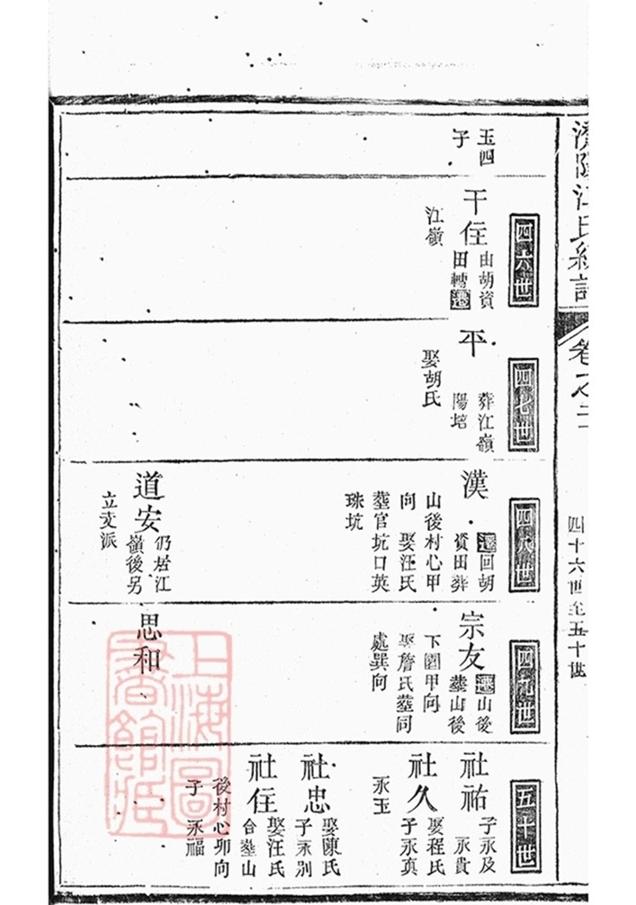 濟陽江氏統譜
卷之二
四十六世至五十世
玉四
子
四六世
干住
由胡資
田轉遷
江嶺
四七世
平
葬江嶺
陽培
娶胡氏
四八世
漢
遷回胡
資田葬
山後村心甲
向 娶汪氏
塟官坑口英
珠坑
道安
仍居江
嶺後另
立支派
四九世
宗友
遷山後
塟山後
下園甲向
娶詹氏塟同
處巽向
思和
五十世
社祐
子永及
永貴
社久
娶程氏
子永真
永玉
社忠
娶陳氏
子永別
社住
娶汪氏
合塟山
後村心卯向
子 永福
上海圖
書館藏